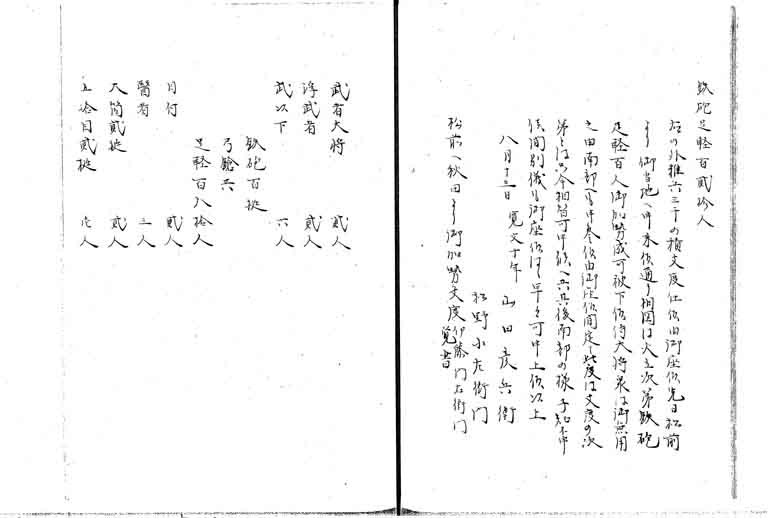 鉄砲足軽百貳拾人
右の外雑兵三千の積支度仕候由御座候先日松前
より御当地へ申来候通り相図は火立次第鉄砲
足軽百人御加勢成可被下候侍大将衆は御無用
之由南部へも申参候由御座候間定て此度は支度の次
第には只今相留可申候へ共其後南部の様子知不申
候間別儀も御座候はゞ早々可申上候以上
八月十三日 寛文十年 山田彦兵衛
松野小左衛門
松前へ秋田より御加勢支度伊藤門右衛門覚書
武者大将 貳人
浮武者 貳人
武以下 六人
鉄砲百挺
弓鎗共
足軽百八拾人
目付 貳人
醫者 三人
大筒貳挺 貳人
五拾目貳挺 人